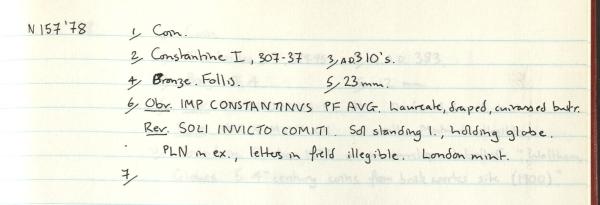 N157'78 1, Coin.
2, Constantine I, 307-37 3, AD310's.
4, Bronze. Follis. 5, 23mm.
6, Obv. IMP CONSTANTINVS PF AVG. Laureate, draped, cuirassed bust r.
Rev. SOLI INVICTO COMITI. Sol standing l., holding globe.
PLN in ex., letters in field illegible. London mint.
7,